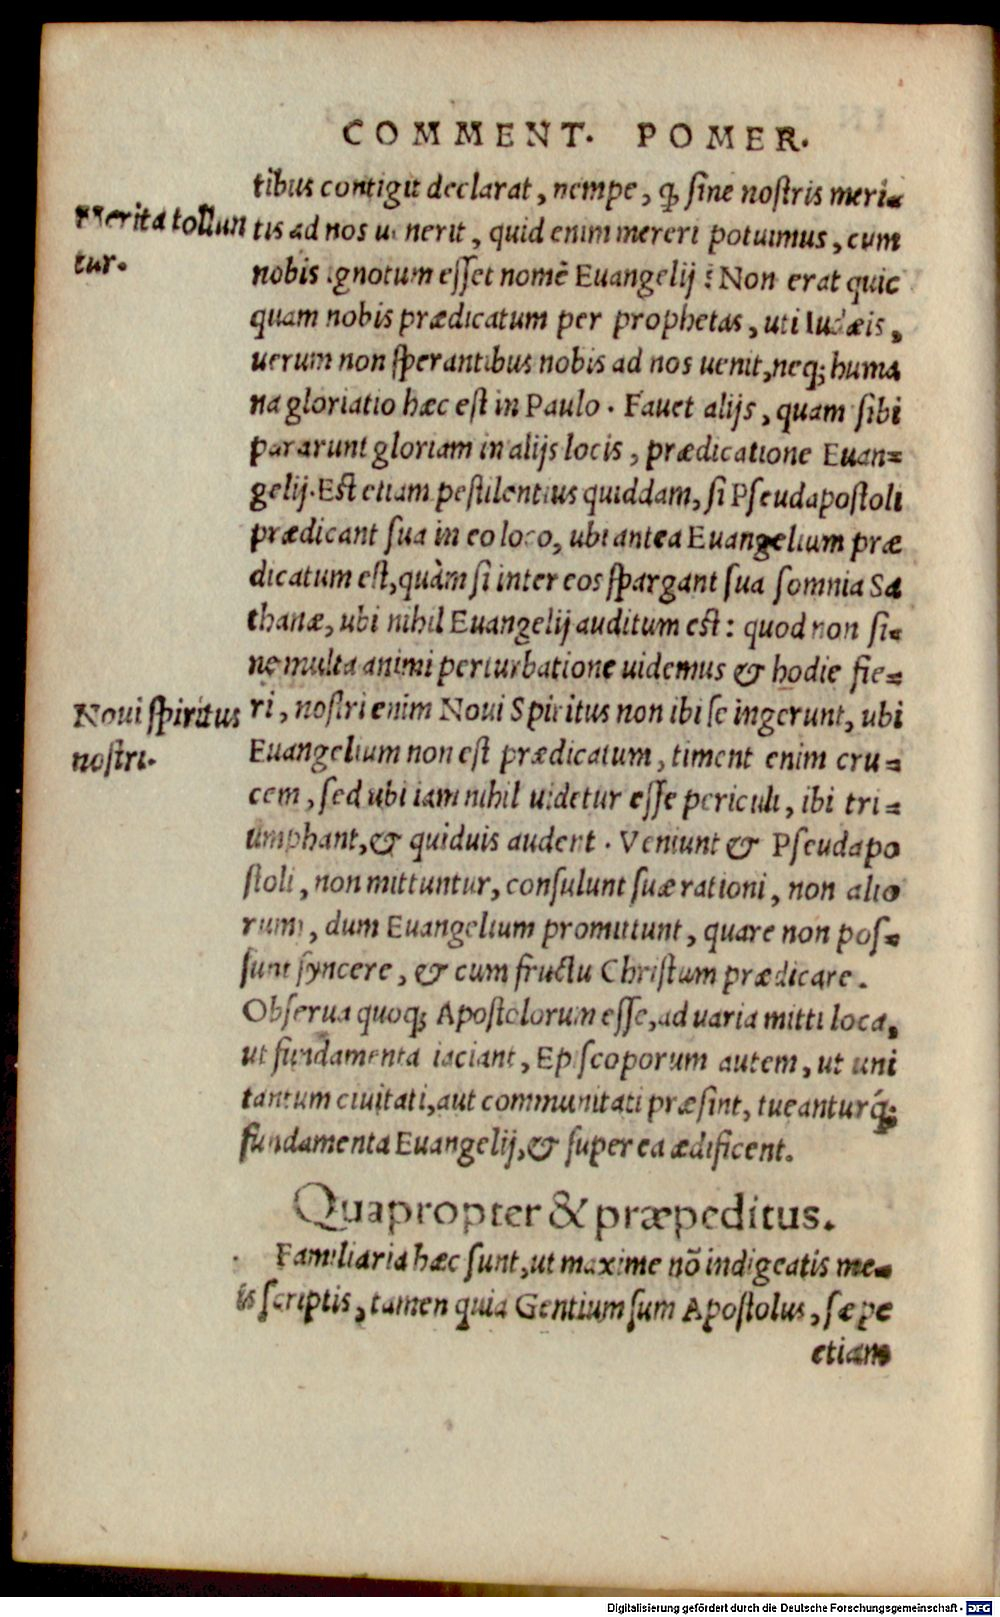 COMMENT. POMER.
tibus contigit declarat, nempe, ꝙ sine nostris meri-
Merita tollun
tur.
tis ad nos uenerit, quid enim mereri potuimus, cum
nobis ignotum esset nomē Euangelij? Non erat quic
quam nobis prædicatum per prophetas, uti Iudæis,
uerum non sperantibus nobis ad nos uenit, neq; huma
na gloriatio hæc est in Paulo. Fauet alijs, quam sibi
pararunt gloriam in alijs locis, prædicatione Euan-
gelij. Est etiam pestilentius quiddam, si Pseudapostoli
prædicant sua in eo loco, ubi antea Euangelium præ
dicatum est, quàm si inter eos spargant sua somnia Sa
thanæ, ubi nihil Euangelij auditum est: quod non si-
ne multa animi perturbatione uidemus & hodie fie-
Noui spiritus
nostri.
ri, nostri enim Noui Spiritus non ibi se ingerunt, ubi
Euangelium non est prædicatum, timent enim cru-
cem, sed ubi iam nihil uidetur esse periculi, ibi tri-
umphant, & quiduis audent. Veniunt & Pseudapo
stoli, non mittuntur, consulunt suæ rationi, non alio
rum, dum Euangelium promittunt, quare non pos-
sunt syncere, & cum fructu Christum prædicare.
Obserua quoq; Apostolorum esse, ad uaria mitti loca,
ut fundamenta iaciant, Episcoporum autem, ut uni
tantum ciuitati, aut communitati præsint, tueanturq́;
fundamenta Euangelij, & super ea ædificent.
Quapropter & præpeditus.
Familiaria hæc sunt, ut maxime nō indigeatis me-
is scriptis, tamen quia Gentium sum Apostolus, sæpe
etiam
Digitalisierung gefördert durch die Deutsche Forschungsgemeinschaft - DFG